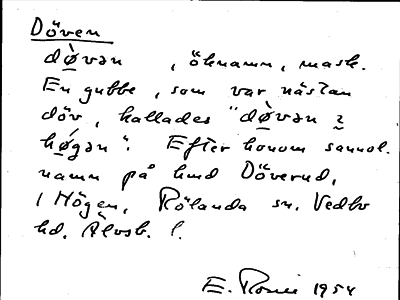 Döven
dø̀vən , öknamn, mask.
En gubbe, som var nästan
döv, kallades "dø̀vən i
hǿgən". Efter honom sannol.
namn på hmd Döverud,
i Högen, Rölanda sn, Vedbo
hd. Älvsb. l.
E. 1954